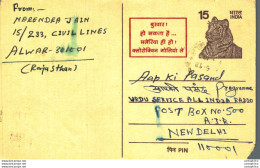 From:
NARENDRA JAIN
15/233, CIVIL LINES
ALWAR-301001
(Rajasthan)
बुखार!
हो सकता है...
मलेरिया ही हो!
क्लोरोक्विन गोलियां लें
15
भारत INDIA
Aap Ki Pasand
Programme
URDU SERVICE ALL INDIA RADIO
POST BOX NO: 500
A.I.R.
NEW DELHI
पिन PIN
110001